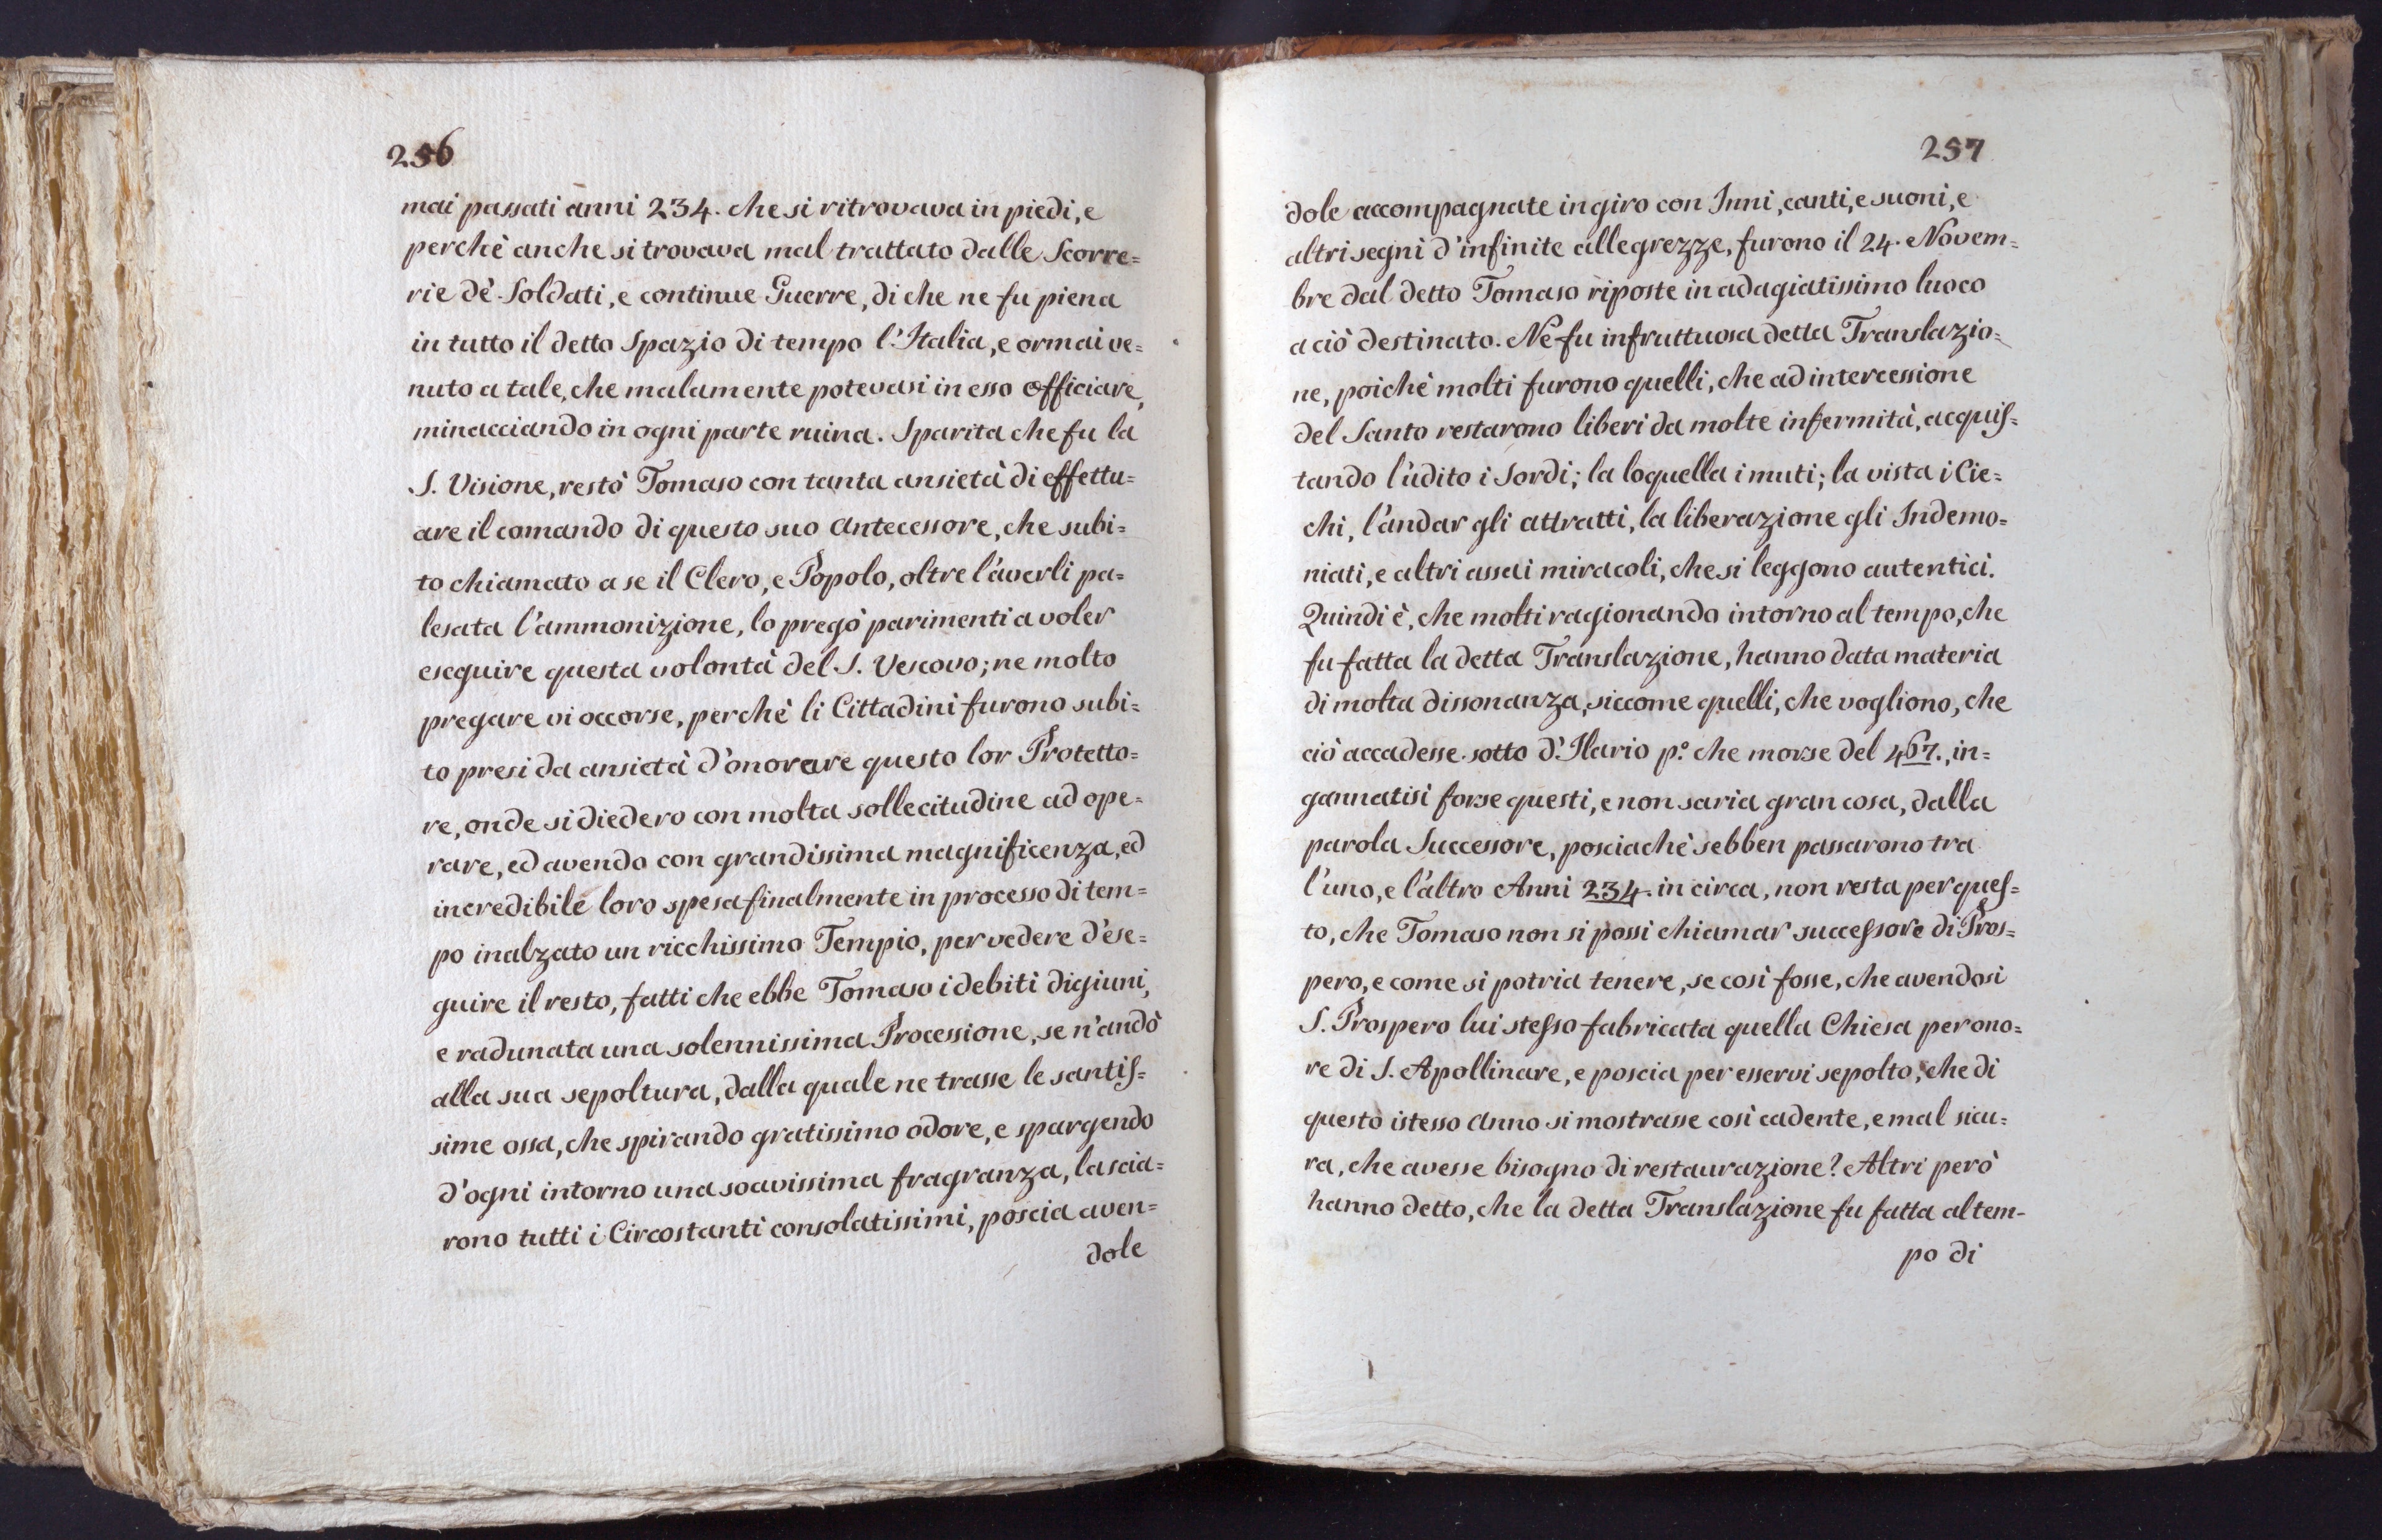 256
mai passati anni 234. che si ritrovava in piedi, e
perchè anche si trovava mal trattato dalle Scorre=
rie dè Soldati, e continue Guerre, di che ne fu piena
in tutto il detto Spazio di tempo l'Italia, e ormai ve=
nuto a tale, che malamente potevasi in esso officiare,
minacciando in ogni parte ruina. Sparita che fu la
S. Visione, restò Tomaso con tanta ansietà di effettu=
are il comando di questo suo Antecessore, che subi=
to chiamato a se il Clero, e Popolo, oltre l'averli pa=
lesata l'ammonizione, lo pregò parimenti a voler
eseguire questa volontà del S. Vescovo; ne molto
pregare vi occorse, perchè li Cittadini furono subi=
to presi da ansietà d'onorare questo lor Protetto=
re, onde si diedero con molta sollecitudine ad ope=
rare, ed avendo con grandissima magnificenza, ed
incredibile loro spesa finalmente in processo di tem=
po inalzato un ricchissimo Tempio, per vedere d'ese=
guire il resto, fatti che ebbe Tomaso i debiti digiuni,
e radunata una solennissima Processione, se n'andò
alla sua sepoltura, dalla quale ne trasse le santis=
sime ossa, che spirando gratissimo odore, e spargendo
d'ogni intorno una soavissima fragranza, lascia=
rono tutti i Circostanti consolatissimi, poscia aven=
dole
257
dole accompagnate in giro con Inni, canti, e suoni, e
altri segni d'infinite allegrezze, furono il 24. Novem=
bre dal detto Tomaso riposte in adagiatissimo luoco
a ciò destinato. Ne fu infruttuosa detta Translazio=
ne, poichè molti furono quelli, che ad intercessione
del Santo restarono liberi da molte infermità, acquis=
tando l'udito i Sordi; la loquella i muti; la vista i Cie=
chi, l'andar gli attratti, la liberazione gli Indemo=
niati, e altri assai miracoli, che si leggono autentici.
Quindi è, che molti ragionando intorno al tempo, che
fu fatta la detta Translazione, hanno data materia
di molta dissonanza, siccome quelli, che vogliono, che
ciò accadesse sotto d'Ilario p.º che morse del 467., in=
gannatisi forse questi, e non saria gran cosa, dalla
parola Successore, posciachè sebben passarono tra
l'uno, e l'altro Anni 234. in circa, non resta per ques=
to, che Tomaso non si possi chiamar successore di Pros=
pero, e come si potria tenere, se così fosse, che avendosi
S. Prospero lui stesso fabricata quella Chiesa per ono=
re di S. Apollinare, e poscia per esservi sepolto, che di
questo istesso Anno si mostrasse così cadente, e mal sicu=
ra, che avesse bisogno di restaurazione? Altri però
hanno detto, che la detta Translazione fu fatta al tem-
po di